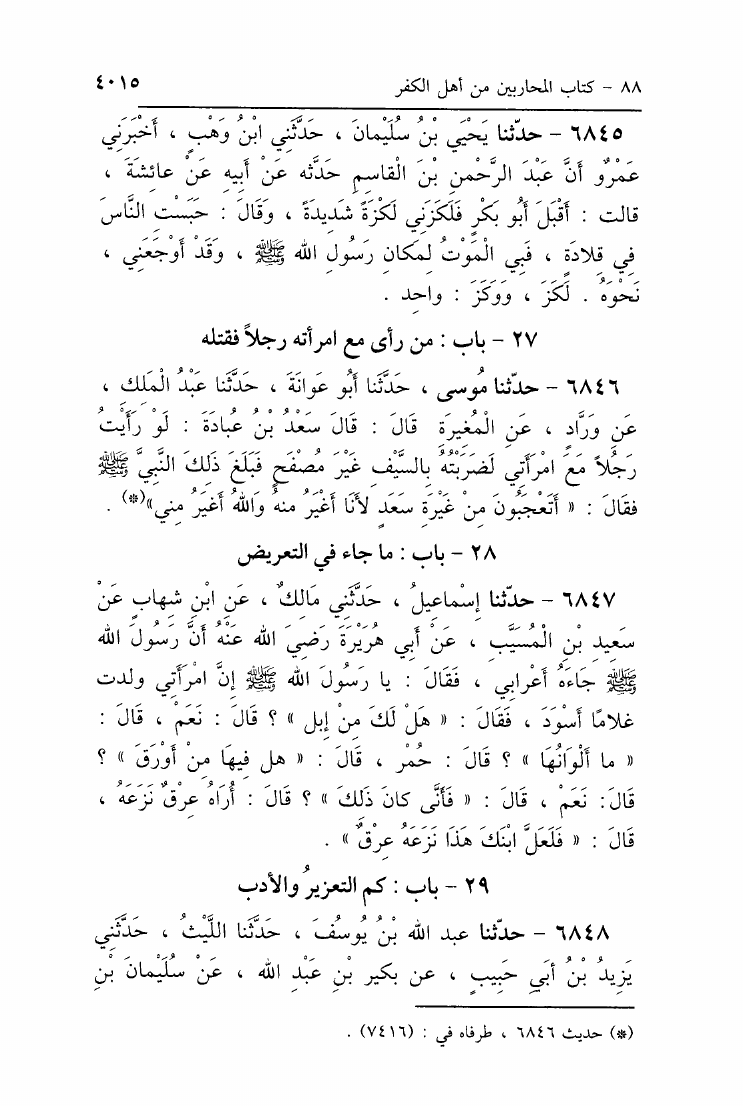 ٨٨ - كتاب المحاربين من أهل الكفر ٤٠١٥
٦٨٤٥ - حدّثنا يَحْيَى بْنُ سُلَيْمانَ ، حَدَّثَنِي ابْنُ وَهْبٍ ، أَخْبَرَنِي
عَمْرُو أَنَّ عَبْدَ الرَّحْمنِ بْنَ الْقاسِمِ حَدَّثه عَنْ أَبِيهِ عَنْ عائشَةَ ،
قالت : أَقْبَلَ أَبُو بَكْرٍ فَلَكَزَنِي لَكْزَةً شَدِيدَةً ، وَقَالَ : حَبَسْتِ النَّاسَ
فِي قِلادَةٍ ، فَبِي الْمَوْتُ لِمَكانِ رَسُولِ الله ﷺ ، وَقَدْ أَوْجَعَنِي ،
نَحْوَهُ . لَكَزَ ، وَوَكَزَ : واحِد .
٢٧ - باب : من رأى مع امرأته رجلاً فقتله
٦٨٤٦ - حدّثنا مُوسى ، حَدَّثَنَا أَبُو عَوانَةَ ، حَدَّثَنا عَبْدُ الْمَلِكِ ،
عَنِ وَرَّادٍ ، عَنِ الْمُغِيرَةِ قَالَ : قَالَ سَعْدُ بْنُ عُبادَةَ : لَوْ رَأَيْتُ
رَجُلاً مَعَ امْرَأَتِي لَضَرَبْتُهُ بِالسَّيْفِ غَيْرَ مُصْفَحٍ فَبَلَغَ ذَلِكَ النَّبِيَّ ﷺ
فقَالَ : « أَتَعْجَبُونَ مِنْ غَيْرَةِ سَعَدٍ لأَنَا أَغْيَرُ مِنهُ وَاللهُ أَغْيَرُ مِنِي»(*) .
٢٨ - باب : ما جاء في التعريض
٦٨٤٧ - حدّثنا إِسْماعِيلُ ، حَدَّثَنِي مَالِكٌ ، عَنِ ابْنِ شِهابٍ عَنْ
سَعِيدِ بْنِ الْمُسَيَّبِ ، عَنْ أَبِي هُرَيْرَةَ رَضِيَ الله عَنْهُ أَنَّ رَسُولَ الله
ﷺ جَاءَهُ أَعْرابِي ، فَقَالَ : يا رَسُولَ الله ﷺ إِنَّ امْرَأَتِي ولدت
غلامًا أَسْوَدَ ، فَقَالَ : « هَلْ لَكَ مِنْ إِبل » ؟ قَالَ : نَعَمْ ، قَالَ :
« ما أَلْوَانُهَا » ؟ قَالَ : حُمْر ، قَالَ : « هل فِيهَا مِنْ أَوْرَقَ » ؟
قَالَ: نَعَمْ ، قَالَ : « فَأَنَّى كانَ ذَلِكَ » ؟ قَالَ : أُرَاهُ عِرْقٌ نَزَعَهُ ،
قَالَ : « فَلَعَلَّ ابْنَكَ هَذَا نَزَعَهُ عِرْقٌ » .
٢٩ - باب : كم التعزيرُ والأدب
٦٨٤٨ - حدّثنا عبد الله بْنُ يُوسُفَ ، حَدَّثَنَا اللَّيْثُ ، حَدَّثَنِي
يَزِيدُ بْنُ أَبِي حَبِيبٍ ، عن بكير بْنِ عَبْدِ الله ، عَنْ سُلَيْمانَ بْنِ
(*) حديث ٦٨٤٦ ، طرفاه في : (٧٤١٦) .